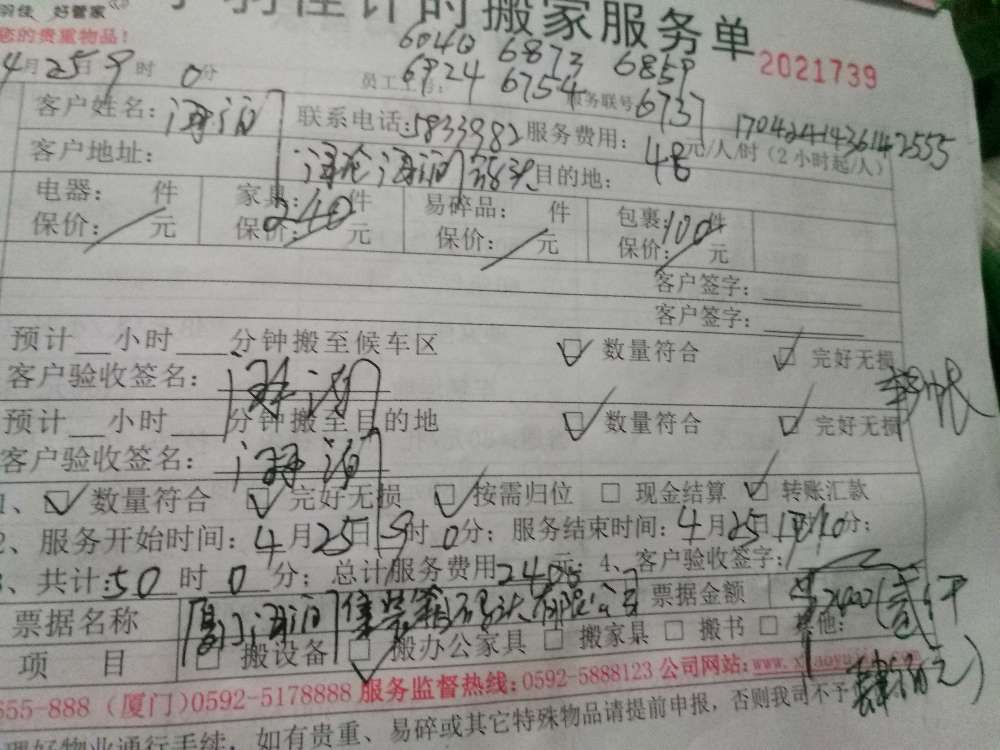 好管家
您的贵重物品！
计时搬家服务单
2021739
6040 6873 6859
4月25日9时0分
员工工号：6924 6754
服务联号6737
17042414436142555
客户姓名：海润
联系电话：5833982
服务费用：48元/人/时（2小时起/人）
客户地址：
海沧海润
目的地：
电器： 件
家具：240件
易碎品： 件
包裹：100件
保价： 元
保价： 元
保价： 元
保价： 元
客户签字：
客户签字：
预计__小时__分钟搬至候车区
数量符合
完好无损
客户验收签名：海润
预计__小时__分钟搬至目的地
数量符合
完好无损
客户验收签名：海润
1、数量符合 完好无损 按需归位 现金结算 转账汇款
2、服务开始时间：4月25日9时0分；服务结束时间：4月25日
3、共计：50时0分；总计服务费用2400元；4、客户验收签字：
票据名称
厦门海润集装箱码头有限公司
票据金额
¥2400（贰仟肆佰元）
项目
搬设备 搬办公家具 搬家具 搬书 其他：
655-888（厦门）0592-5178888 服务监督热线：0592-5888123 公司网站：www.xiaoyu
理好物业通行手续，如有贵重、易碎或其它特殊物品请提前申报，否则我司不予